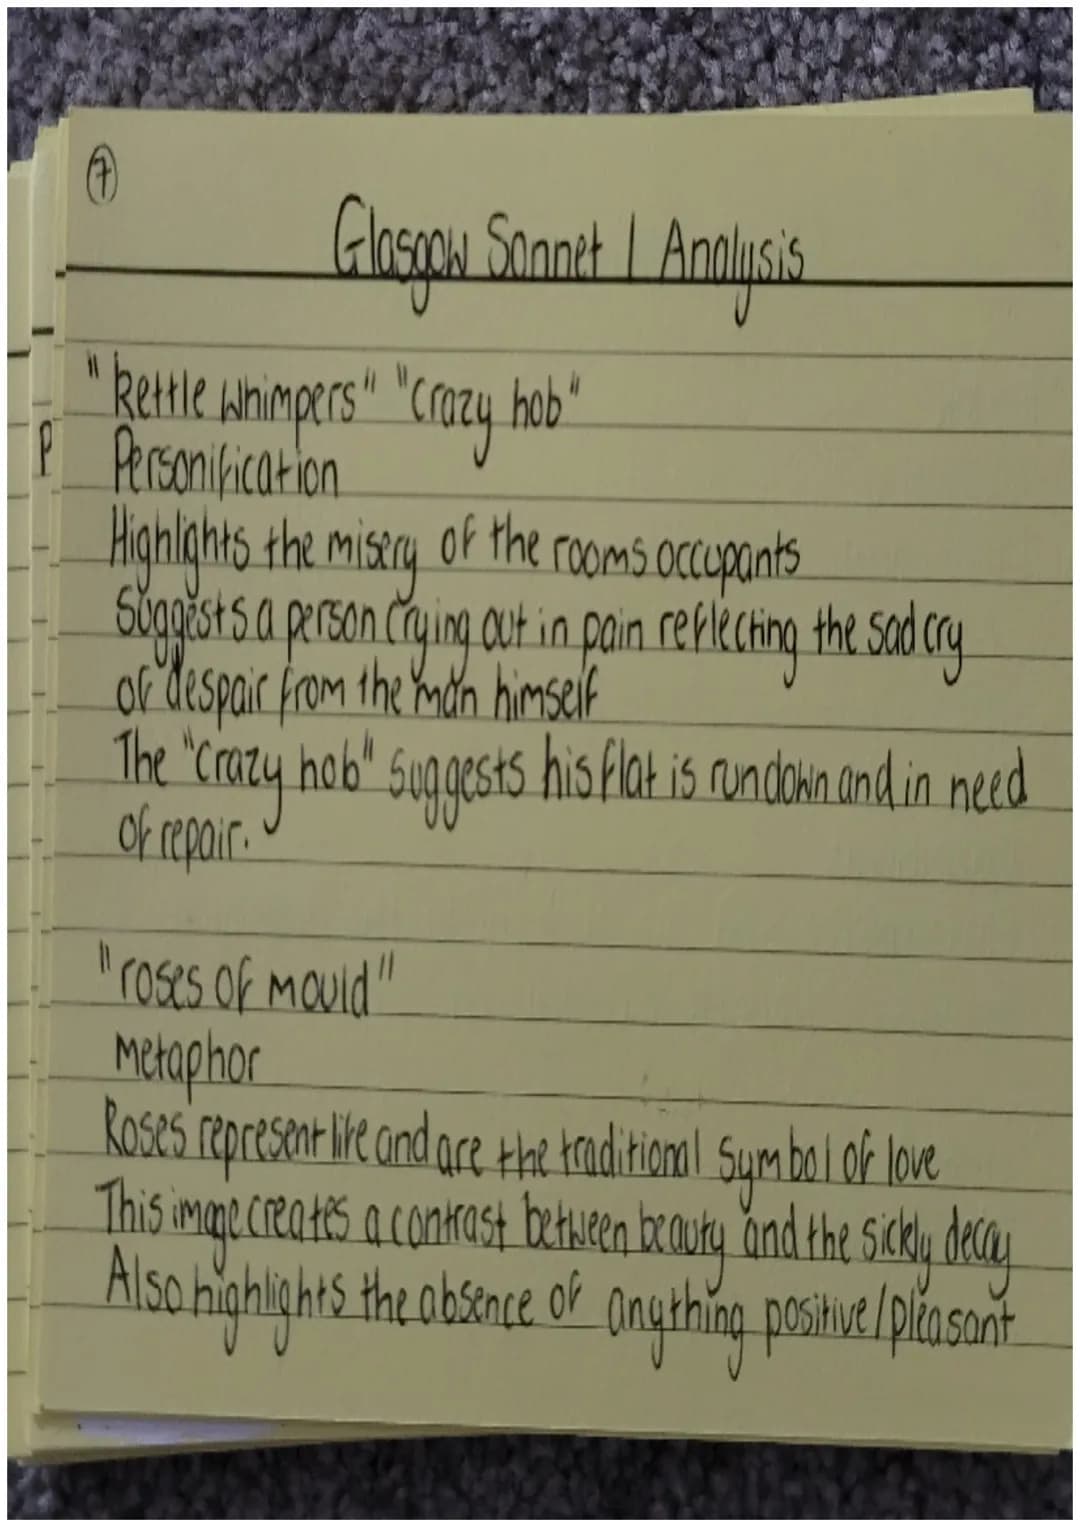 7
Glasgow Sonnet 1 Analysis
"kettle whimpers" "crazy hob"
Personification
Highlights the misery of the rooms occupants
Suggests a person crying out in pain reflecting the sad cry
of despair from the man himself
The "crazy hob" suggests his flat is rundown and in need
of repair.
"roses of mould"
Metaphor
Roses represent life and are the traditional symbol of love
This image creates a contrast between beauty and the sickly decay
Also highlights the absence of anything positive/pleasant
P